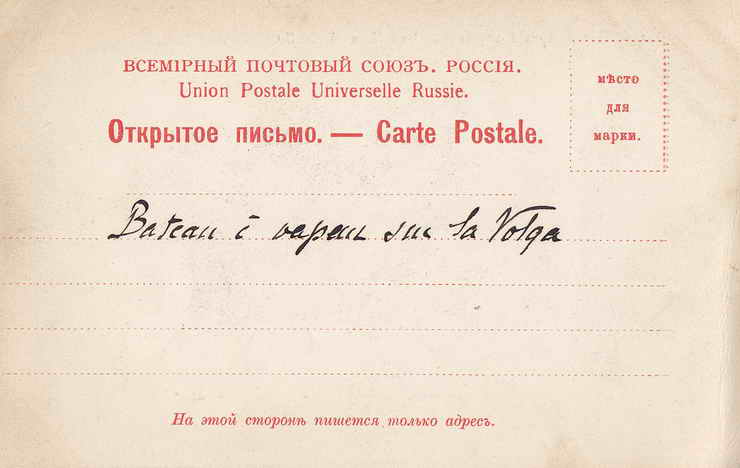 ВСЕМІРНЫЙ ПОЧТОВЫЙ СОЮЗЪ. РОССІЯ.
Union Postale Universelle Russie.
Открытое письмо. — Carte Postale.
мѣсто
для
марки.
Bateau à vapeur sur la Volga
На этой сторонѣ пишется только адресъ.